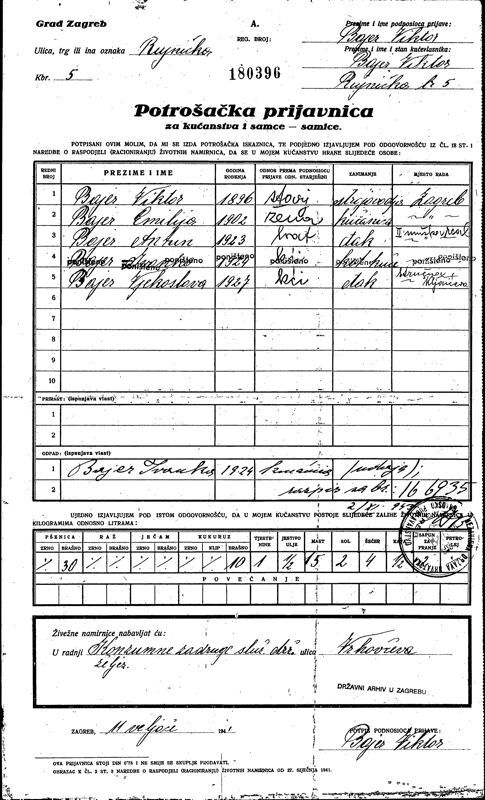 Grad Zagreb
Ulica, trg ili ina oznaka Rujnička
Kbr. 5
A.
REG. BROJ:
180396
Prezime i ime podnosioca prijave:
Bajer Viktor
Prezime i ime i stan kućevlasnika:
Bajer Viktor
Rujnička br 5
Potrošačka prijavnica
za kućanstva i samce — samice.
POTPISANI OVIM MOLIM, DA MI SE IZDA POTROŠAČKA ISKAZNICA, TE PODJEDNO IZJAVLJUJEM POD ODGOVORNOŠĆU IZ ČL. 18 ST. 1
NAREDBE O RASPODJELI (RACIONIRANJU) ŽIVOTNIH NAMIRNICA, DA SE U MOJEM KUĆANSTVU HRANE SLIJEDEĆE OSOBE:
REDNI BROJ PREZIME I IME GODINA ROĐENJA ODNOS PREMA PODNOSIOCU PRIJAVE ODN. STARJEŠINI ZANIMANJE MJESTO RADA
1 Bajer Viktor 1896 Zagreb
2 Bajer Emilija 1902 žena kućanica "
3 Bajer Antun 1923 brat đak
4 Bajer poništeno poništeno poništeno poništeno poništeno
5 Bajer Vjekoslava 1927 kći đak
6
7
8
9
10
PRIRAST: (ispunjava vlast)
1
2
ODPAD: (ispunjava vlast)
1 Bajer Ivanka 1924
2 166935
UJEDNO IZJAVLJUJEM POD ISTOM ODGOVORNOŠĆU, DA U MOJEM KUĆANSTVU POSTOJE SLIJEDEĆE ZALIHE ŽIVOTNIH NAMIRNICA
KILOGRAMIMA ODNOSNO LITRAMA:
PŠENICA RAŽ JEČAM KUKURUZ TJESTENINE JESTIVO ULJE MAST SOL ŠEĆER SAPUN ZA PRANJE
ZRNO BRAŠNO ZRNO BRAŠNO ZRNO BRAŠNO ZRNO KLIP BRAŠNO
% 30 % % % % % % 10 1 ½ 15 2 4 ½ 2
POVEĆANJE
Živežne namirnice nabavljat ću:
U radnji Konzumne zadruge služ. drž. ulica Vrhovčeva
željez.
DRŽAVNI ARHIV U ZAGREBU
ZAGREB, 11 veljače 194
POTPIS PODNOSIOCA PRIJAVE:
Bajer Viktor
OVA PRIJAVNICA STOJI DIN 0'75 I NE SMIJE SE SKUPLJE PRODAVATI.
OBRAZAC K ČL. 2 ST. 2 NAREDBE O RASPODJELI (RACIONIRANJU) ŽIVOTNIH NAMIRNICA OD 27. SIJEČNJA 1941.